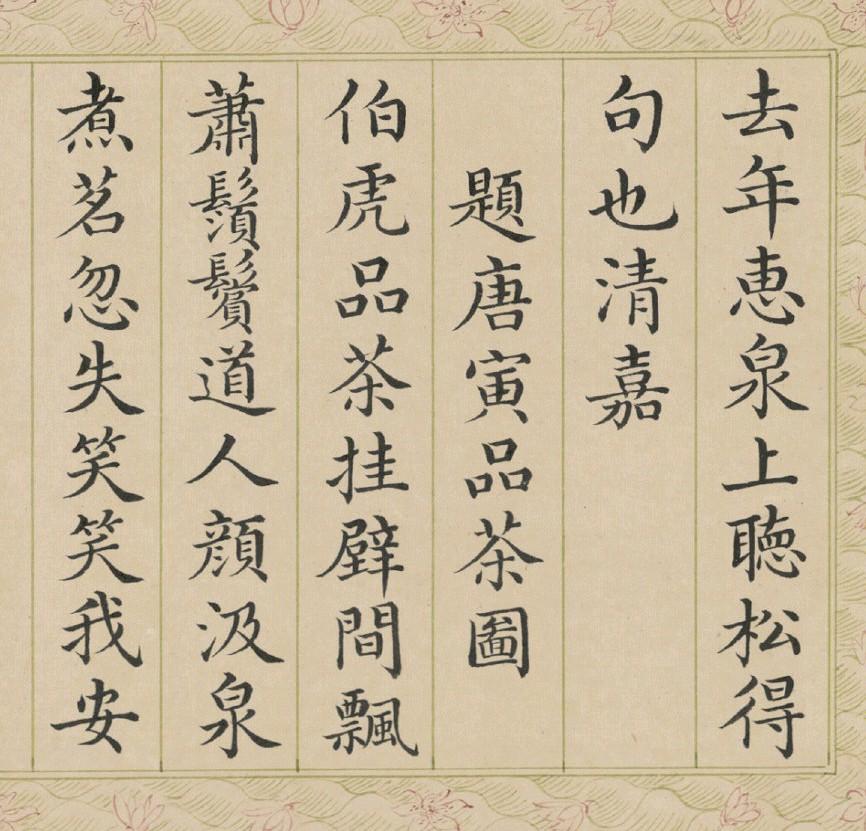 去年恵泉上聴松得
句也清嘉
題唐寅品茶圖
伯虎品茶挂壁間飄
蕭鬚鬢道人顔汲泉
煮茗忽失笑笑我安